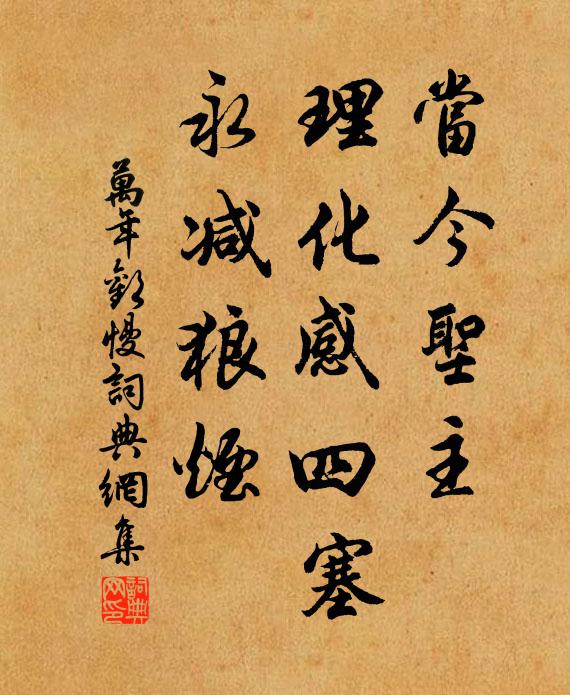 當今聖主
理化感四塞
永減狼煙
萬年歡慢詞典網集
詞典網印